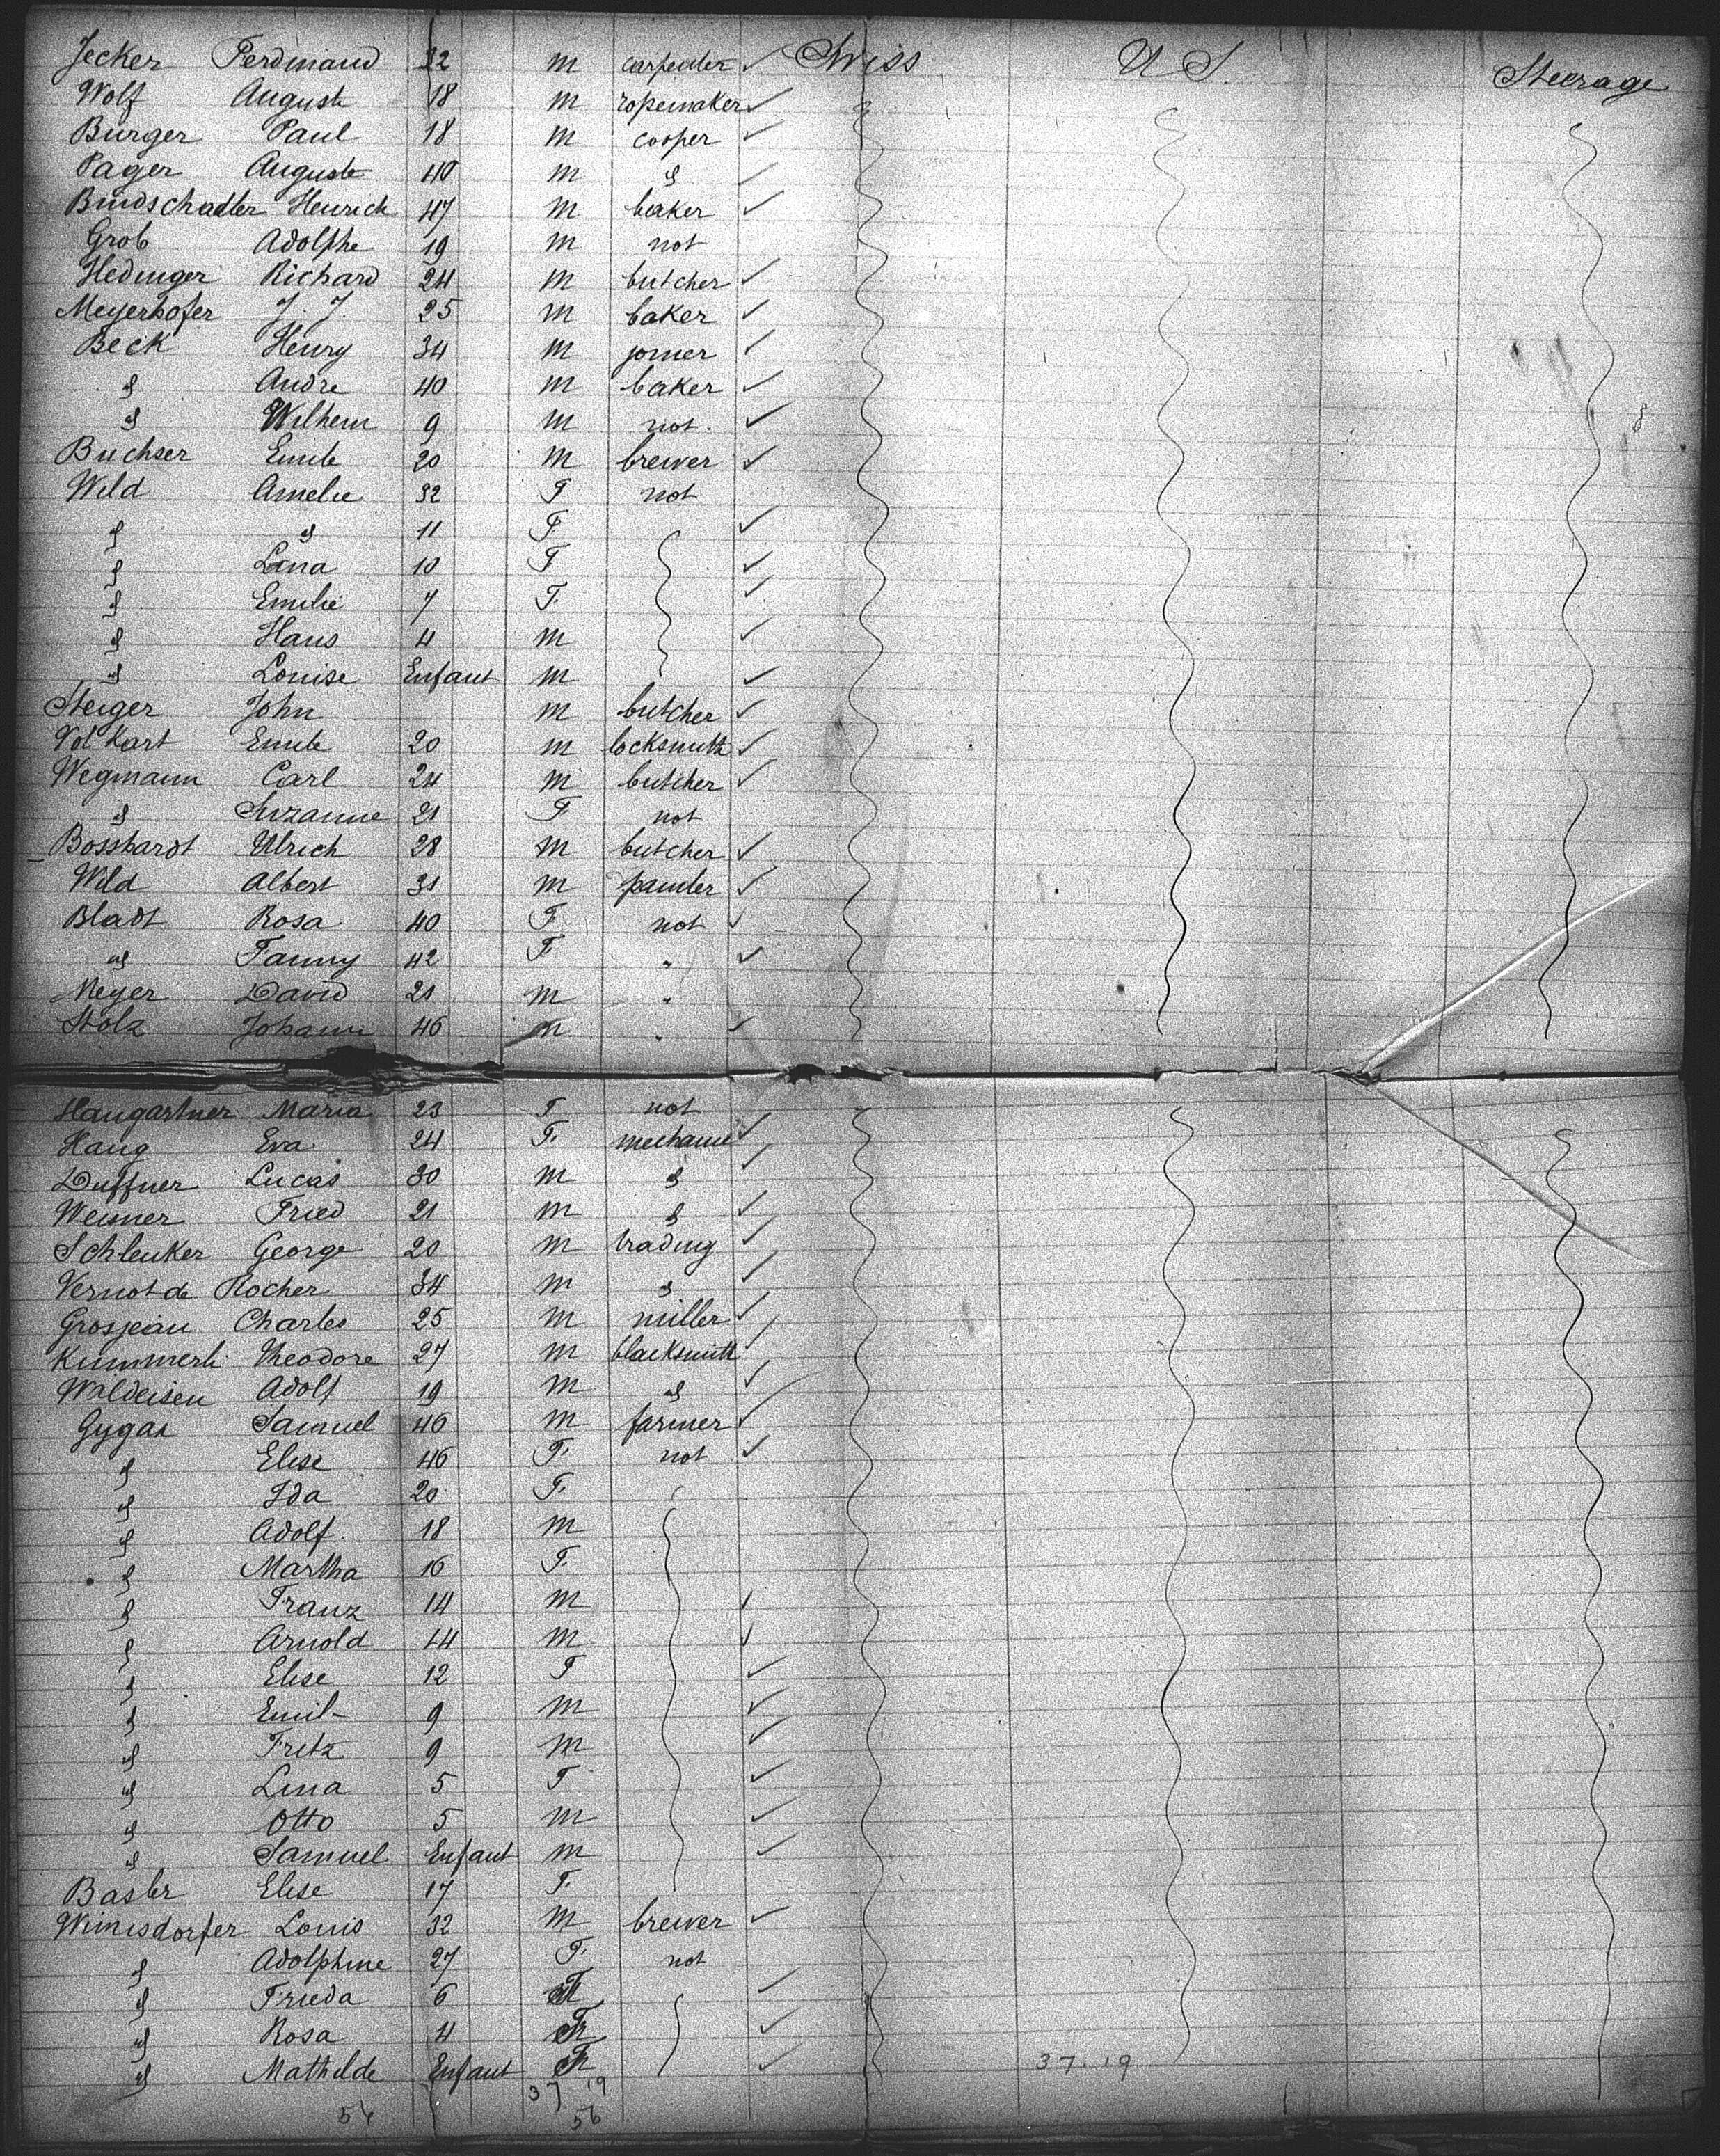 Jecker Ferdinand 32 m carpenter ✓ Swiss U S. Steerage
Wolf Auguste 18 m ropemaker ✓
Burger Paul 18 m cooper ✓
Pager Auguste 40 m " ✓
Bindschadler Heinrich 47 m baker ✓
Grob Adolphe 19 m not
Hedinger Richard 24 m butcher ✓
Meyerhofer J. J. 25 m baker ✓
Beck Henry 34 m joiner ✓
" Andre 40 m baker ✓
" Wilhem 9 m not. ✓
Buchser Emile 20 m brewer ✓
Wild Amelie 32 F not
" " 11 F. ✓
" Lina 10 F ✓
" Emilie 7 F. ✓
" Hans 4 m ✓
" Louise Enfant m ✓
Steiger John m butcher ✓
Volkart Emile 20 m locksmith ✓
Wegmann Carl 24 m butcher ✓
" Suzanne 21 F not
Bosshardt Ulrich 28 m butcher ✓
Wild Albert 31 m painter ✓
Bladt Rosa 40 F not ✓
" Fanny 42 F " ✓
Meyer David 21 m "
Stolz Johann 46 m " ✓
Haugartner Maria 23 F not ✓
Haug Eva 24 F. mechanic ✓
Duffner Lucas 30 m " ✓
Weisner Fried 21 m " ✓
Schlenker George 20 m trading ✓
Vernot de Rocher 34 m " ✓
Grosjean Charles 25 m miller ✓
Kummerli Theodore 27 m blacksmith ✓
Waldeisen Adolf 19 m " ✓
Gygax Samuel 46 m farmer ✓
" Elise 46 F. not ✓
" Ida 20 F.
" Adolf 18 m
" Martha 16 F.
" Franz 14 m ✓
" Arnold 14 m ✓
" Elise 12 F ✓
" Emil 9 m ✓
" Fritz 9 m ✓
" Lina 5 F ✓
" Otto 5 m ✓
" Samuel Enfant m ✓
Basler Elise 17 F.
Winisdorfer Louis 32 m brewer ✓
" Adolphine 27 F. not
" Frieda 6 F ✓
" Rosa 4 F ✓
" Mathilde Enfant F ✓ 37.19
37 19
56